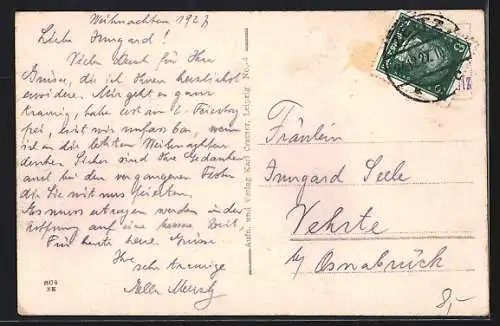 Weihnachten 1927
Liebe Irmgard!
Vielen Dank für Ihre
Grüsse, die ich Ihnen herzlichst
erwidere. Mir geht es ganz
traurig, habe erst am 2. Feiertag
frei, ist mir unfassbar, wenn
ich an die letzten Weihnachten
denke. Sicher sind Ihre Gedanken
auch bei dem vergangenen Feste
die Sie mit uns feierten.
Es muss ertragen werden in der
Hoffnung auf eine bessere Zeit.
Für heute liebe Grüsse
Ihre
sehr traurige
Aufn. und Verlag Karl Cramer, Leipzig No. 4
Fräulein
Irmgard Seele
Vehrte
b/ Osnabrück
8,-